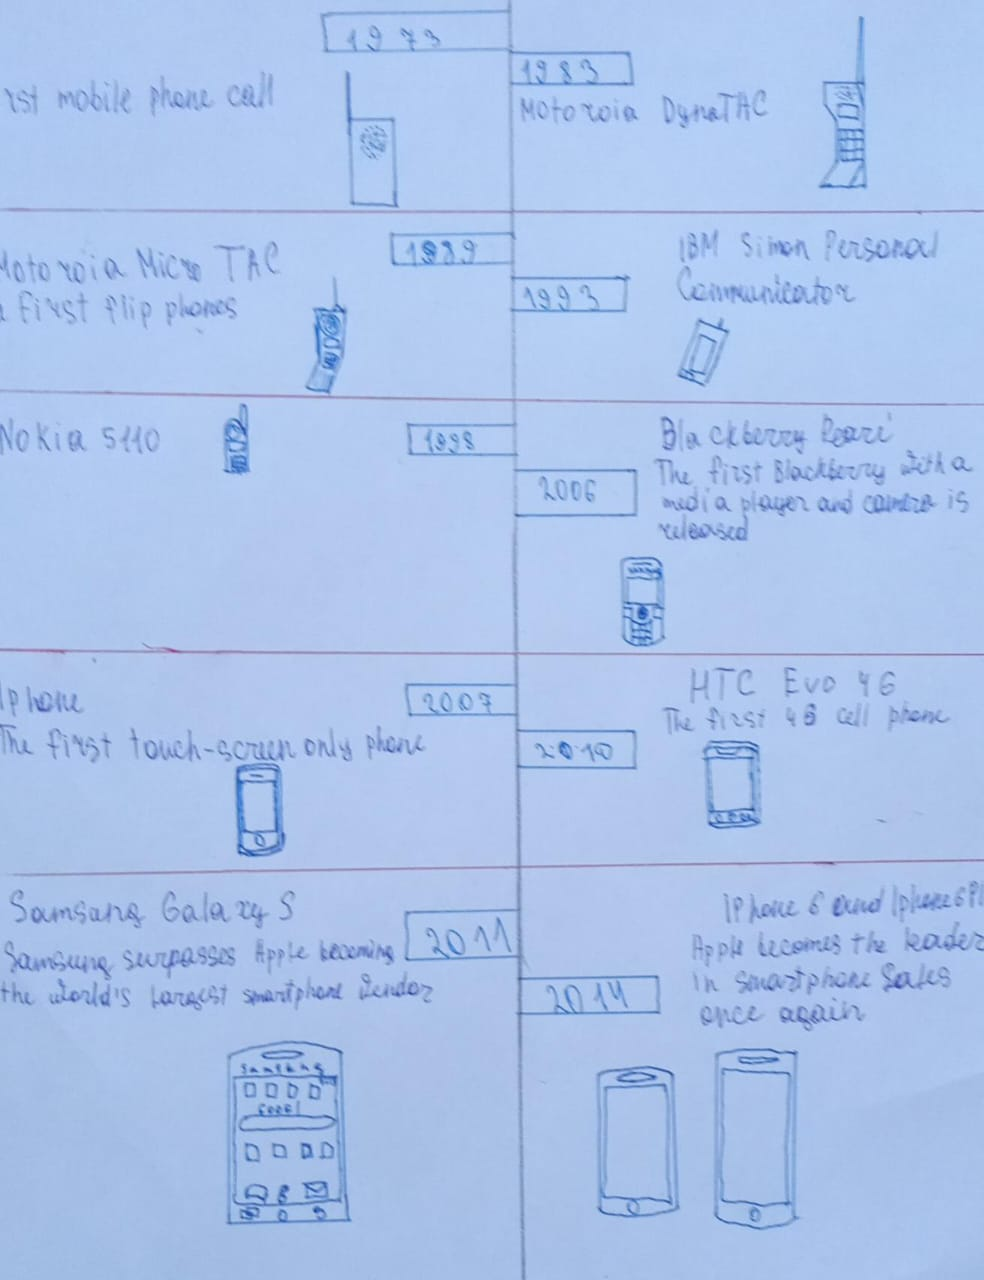 1973
rst mobile phone call
1983
Motoroia DynaTAC
1989
Motoroia Micro TAC
a First flip phones
1993
IBM Simon Personal
Communicator
1998
Nokia 5110
2006
Blackberry Pearl
The first Blackberry with a
media player and camera is
released
2007
Iphone
The first touch-screen only phone
2010
HTC Evo 4G
The first 4G cell phone
2011
Samsang Galaxy S
Samsung surpasses Apple becoming
the world's largest smartphone vendor
Samsung
2014
iPhone 6 and Iphone 6Pl
Apple becomes the leader
in smartphone sales
once again